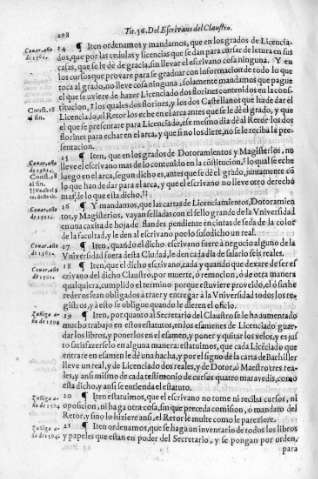 208 Tit. 56. Del Escrivano del Claustro.
14 ¶ Iten ordenamos y mandamos, que en los grados de Licencia-
dos, que por las cedulas y licencias que se dan para cursar de letura en sus
casas, que se le dè de gracia, sin llevar el escrivano cosa ninguna. Y en
los cursos que provare para se graduar con informacion de todo lo que
toca al grado, no lleve cosa ninguna: solamente mandamos que pague
el que se uviere de hazer Licenciado dos florines contenidos en la cons-
titucion, los quales dos florines, y los dos Castellanos que ha de dar el
Licenciado, el Retor los eche en el arca antes que se le dè el grado, y que
el que se presentare para Licenciado, esse mismo dia dè al Retor los dos
florines para echar en el arca, y que si no los diere, no se le reciba la pre-
sentacion.
15 ¶ Iten, que en los grados de Dotoramientos y Magisterios, no
lleve el escrivano mas de lo contenido en la constitucion, lo qual se eche
luego en el arca, segun dicho es, antes que se dè el grado, juntamente cõ
lo que han de dar para el arca, y que el escrivano no lleve otro derecho
mas de lo que esta dicho.
16 ¶ Y mandamos, que las cartas de Licenciamientos, Dotoramien
tos, y Magisterios, vayan selladas con el sello grande de la Universidad
en una caxita de hoja de flandes pendiente en cintas de seda de la color
de la facultad, y le den al escrivano por lo susodicho un real.
17 ¶ Iten, quando el dicho escrivano fuere à negocio alguno de la
Universidad fuera desta Ciudad, le den cada dia de salario seis reales.
18 ¶ Iten, que el dicho escrivano, cada y quando que dexare de ser es
crivano del dicho Claustro, por muerte, ò remocion, ò de otra manera
qualquiera, cumplido el termino porque estuviere proveido, el ò sus he
rederos sean obligados a traer y entregar à la Universidad todos los re-
gistros, y à esto se obligue quando le dieren el oficio.
19 ¶ Iten, por quanto al Secretario del Claustro se le ha aumentado
mucho trabajo en estos estatutos, en los esamenes de Licenciado guar-
dar los libros, y ponerlos en el esamen, y poner y quitar los velos, y es jus
to satisfazerlo en alguna manera: estatuimos, que cada Licẽciado que
entrare en esamen le dè una hacha, y por el signo de la carta de Bachiller
lleve un real, y de Licenciado dos reales, y de Dotor, ò Maestro tres rea-
les, y ansi mismo de cada testimonio de cursos quatro maravedis, como
esta dicho, y ansi se entienda el estatuto.
20 ¶ Iten estatuimos, que el escrivano no tome ni reciba cursos, ni
oposicion, ni haga otra cosa, sin que preceda comision, ò mandato del
Retor, y sino lo hiziere ansi, el Retor le multe como le pareciere.
21 ¶ Iten ordenamos, que se haga un inventario de todos los libros
y papeles que estan en poder del Secretario, y se pongan por orden,
para